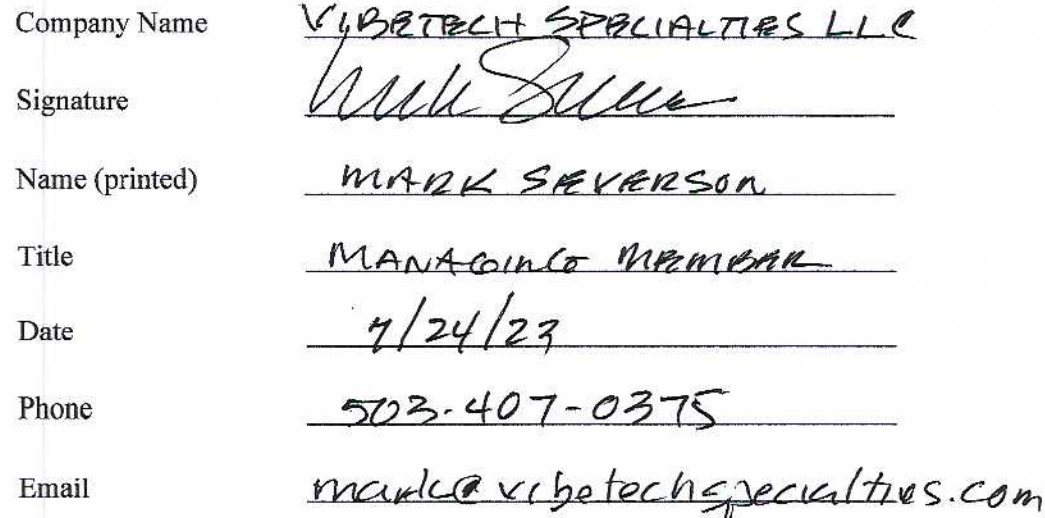 Company Name VIBETECH SPECIALTIES LLC
Signature
Name (printed) MARK SEVERSON
Title MANAGING MEMBER
Date 7/24/23
Phone 503-407-0375
Email mark@vibetechspecialties.com